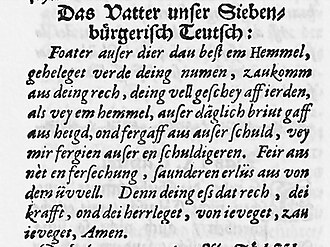 Das Vatter unser Sieben-
bürgerisch Teutsch:
Foater auſer dier dau beſt em Hemmel,
geheleget verde deing numen, zaukomm
aus deing rech, deing vell geſchey aff ierden,
als vey em hemmel, auſer däglich briut gaff
aus heigd, ond fergaff aus auſer ſchuld, vey
mir fergien auſer en ſchuldigeren. Feir aus
nèt en ferſechung, ſaunderen erlüs aus von
dem üvvell. Denn deing eſs dat rech, dei
krafft, ond dei herrleget, von ieveget, zau
ieveget, Amen.